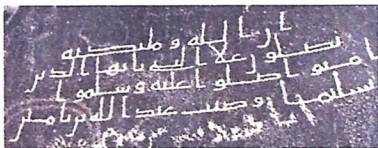 ان الله وملئكته
يصلون على النبي يايها الذين
امنوا صلوا عليه وسلموا
تسليما وكتب عبد الله بن